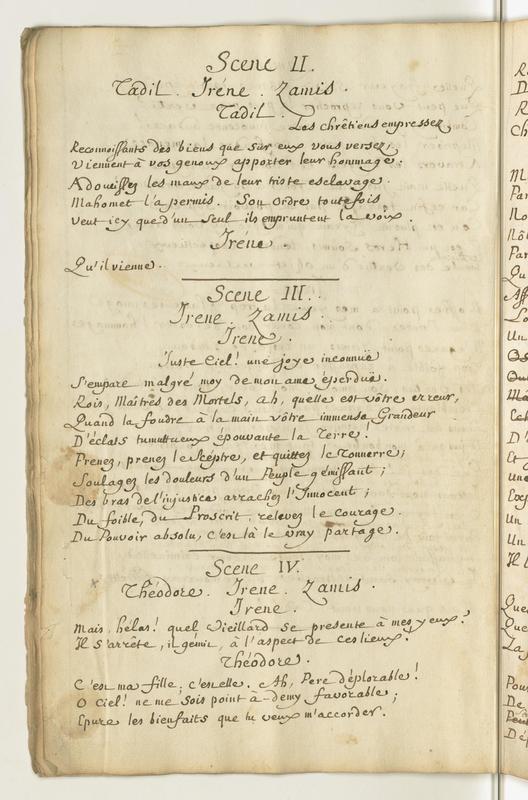 Scene II.
Tadil. Iréne. Zamis.
Tadil.
Les chrêtiens empressez,
Reconnoissants des biens que sur eux vous versez,
Viennent à vos genoux apporter leur hommage:
Adoucissez les maux de leur triste esclavage.
Mahomet l'a permis. Son ordre toutefois
Veut icy que d'un seul ils empruntent la voix.
Iréne.
Qu'il vienne.
Scene III.
Irene. Zamis.
Irene.
Juste Ciel! une joye inconnuë
S'empare malgré moy de mon ame éperduë.
Rois, Maîtres des Mortels, ah, quelle est vôtre erreur,
Quand la foudre à la main vôtre immense Grandeur
D'éclats tumultueux épouvante la Terre.
Prenez, prenez le Sceptre, et quittez le Tonnerre;
Soulagez les douleurs d'un Peuple gémissant;
Des bras de l'injustice arrachez l'Innocent;
Du foible, du Proscrit, relevez le courage.
Du Pouvoir absolu, c'est là le vray partage.
Scene IV.
Théodore. Irene. Zamis.
Irene.
Mais, hélas! quel Vieillard se presente à mes yeux?
Il s'arrête, il gémit, à l'aspect de ces lieux.
Théodore.
C'est ma fille, c'est elle. Ah, Pere déplorable!
O Ciel! ne me sois point à-demy favorable;
Epure les bienfaits que tu veux m'accorder.